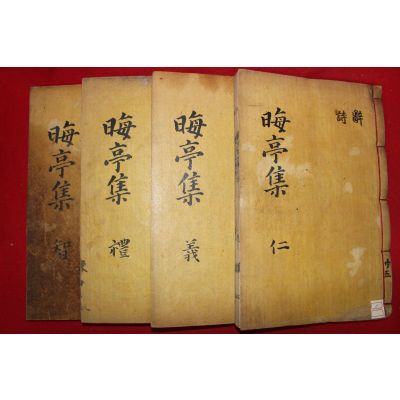 晦亭集 智
晦亭集 禮
晦亭集 義
晦亭集 仁
辭
詩